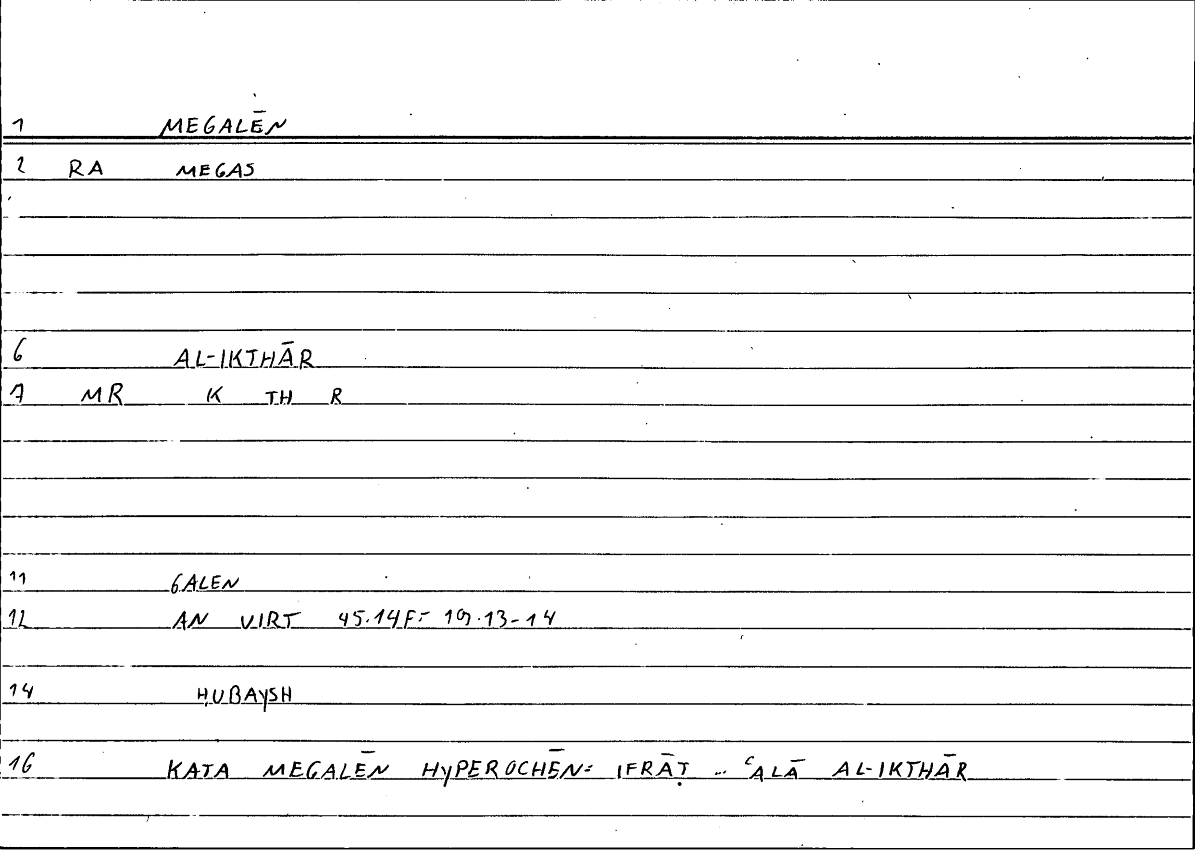 1 MEGALĒN
2 RA MEGAS
6 AL-IKTHĀR
7 MR K TH R
11 GALEN
12 AN VIRT 45.14F= 19.13-14
14 ḤUBAYSH
16 KATA MEGALĒN HYPEROCHĒN= IFRĀṬ .. ʿALĀ AL-IKTHĀR